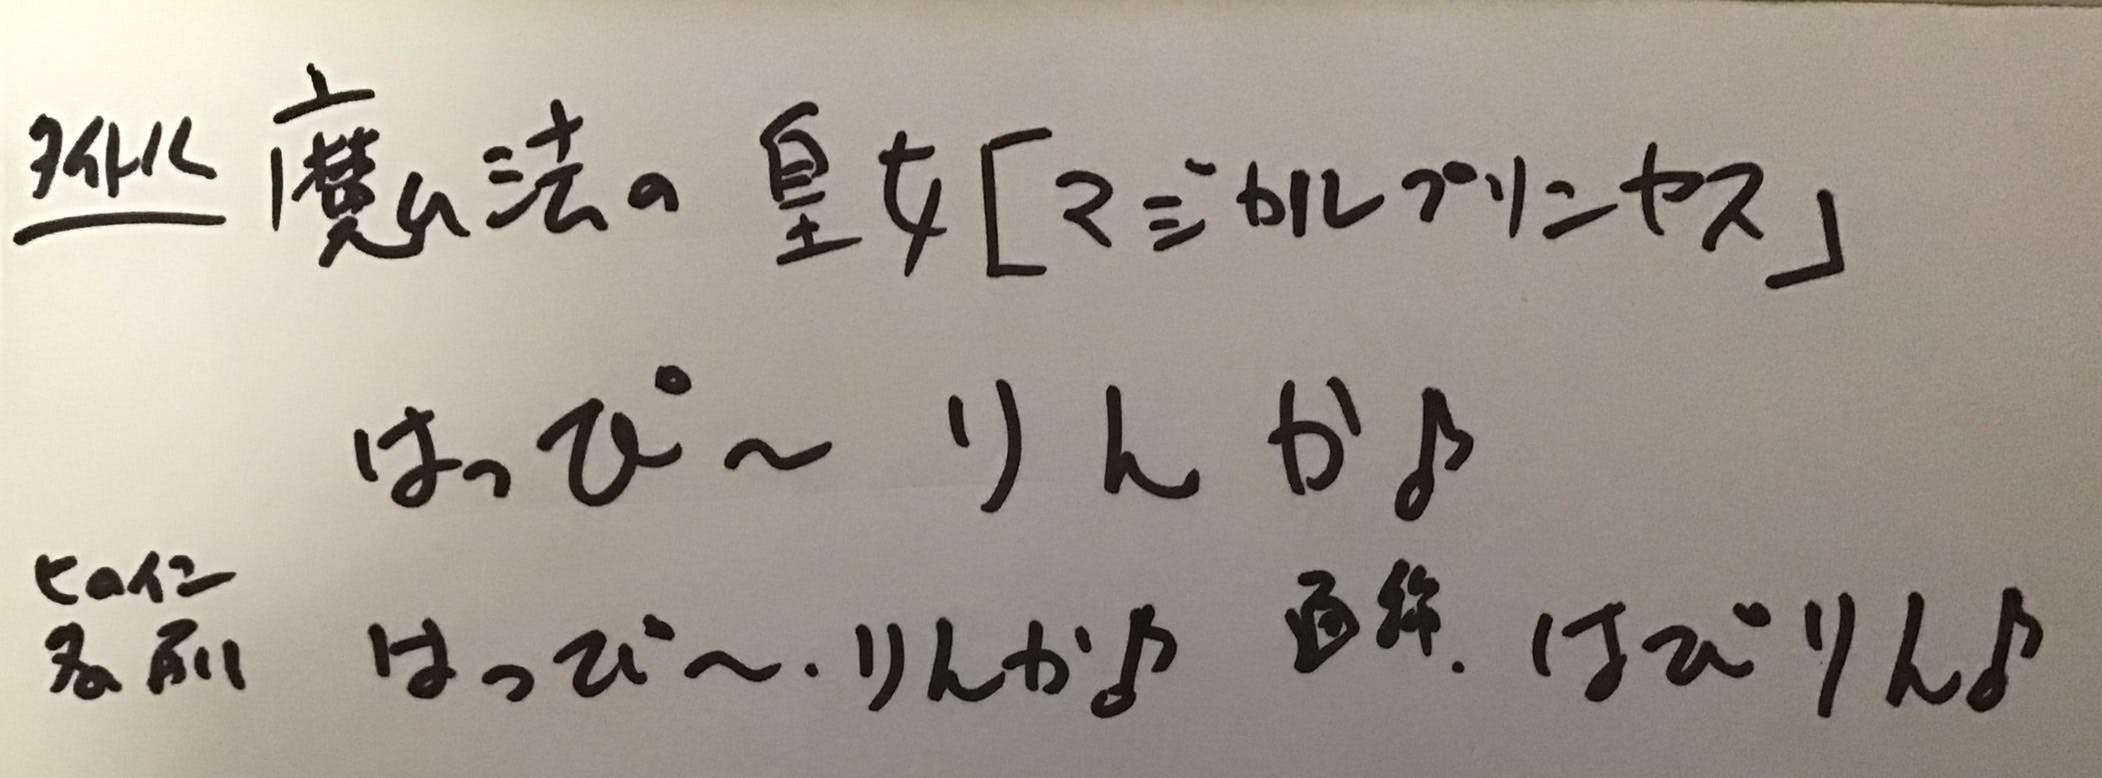 タイトル 魔法の皇女[マジカルプリンセス」
はっぴ〜りんか♪
ヒロイン
名前 はっぴ〜・りんか♪ 通称. はぴりん♪